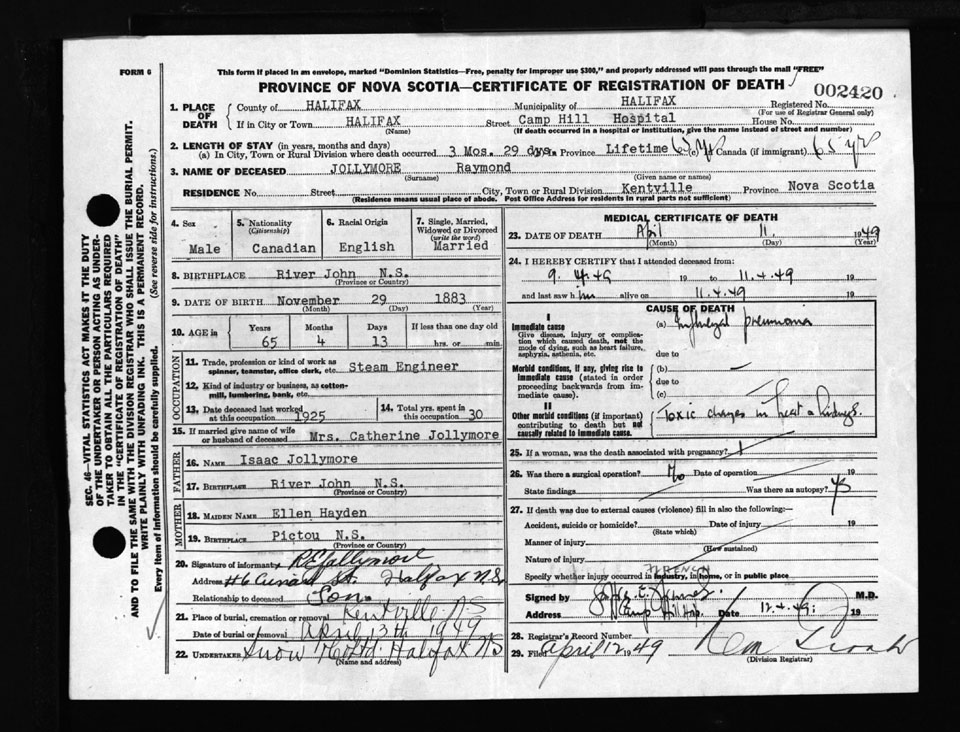 FORM 6
This form if placed in an envelope, marked "Dominion Statistics—Free, penalty for improper use $300," and properly addressed will pass through the mail "FREE"
PROVINCE OF NOVA SCOTIA—CERTIFICATE OF REGISTRATION OF DEATH
002420
1. PLACE OF DEATH
County of HALIFAX Municipality of HALIFAX Registered No.
(For use of Registrar General only)
If in City or Town HALIFAX Street Camp Hill Hospital House No.
(Name) (If death occurred in a hospital or institution, give the name instead of street and number)
2. LENGTH OF STAY (in years, months and days)
(a) In City, Town or Rural Division where death occurred 3 Mos. 29 dys. Province Lifetime Canada (if immigrant) 65 yr
3. NAME OF DECEASED JOLLYMORE Raymond
(Surname) (Given name or names)
RESIDENCE No. Street City, Town or Rural Division Kentville Province Nova Scotia
(Residence means usual place of abode. Post Office Address for residents in rural parts not sufficient)
4. Sex Male
5. Nationality (Citizenship) Canadian
6. Racial Origin English
7. Single, Married, Widowed or Divorced (write the word) Married
8. BIRTHPLACE River John N.S.
(Province or Country)
9. DATE OF BIRTH November 29 1883
(Month) (Day) (Year)
10. AGE in Years Months Days If less than one day old
65 4 13 hrs. or min.
OCCUPATION
11. Trade, profession or kind of work as spinner, teamster, office clerk, etc. Steam Engineer
12. Kind of industry or business, as cotton-mill, lumbering, bank, etc.
13. Date deceased last worked at this occupation 1925
14. Total yrs. spent in this occupation 30
15. If married give name of wife or husband of deceased Mrs. Catherine Jollymore
FATHER
16. NAME Isaac Jollymore
17. BIRTHPLACE River John N.S.
(Province or Country)
MOTHER
18. MAIDEN NAME Ellen Hayden
19. BIRTHPLACE Pictou N.S.
(Province or Country)
20. Signature of informant R E Jollymore
Address #6 St. Halifax N.S.
Relationship to deceased Son
21. Place of burial, cremation or removal Kentville N.S
Date of burial or removal April 13th 1949
22. UNDERTAKER Snow Halifax NS
(Name and address)
MEDICAL CERTIFICATE OF DEATH
23. DATE OF DEATH April 11. 1949
(Month) (Day) (Year)
24. I HEREBY CERTIFY that I attended deceased from:
9. 4.49 19 to 11.4.49 19
and last saw him alive on 11.4.49 19
CAUSE OF DEATH
I
Immediate cause
Give disease, injury or complication which caused death, not the mode of dying, such as heart failure, asphyxia, asthenia, etc.
(a) pneumonia
due to
Morbid conditions, if any, giving rise to immediate cause (stated in order proceeding backwards from immediate cause).
(b)
due to
(c)
II
Other morbid conditions (if important) contributing to death but not causally related to immediate cause.
Toxic changes in heart & kidneys.
25. If a woman, was the death associated with pregnancy?
26. Was there a surgical operation? No Date of operation 19
State findings Was there an autopsy?
27. If death was due to external causes (violence) fill in also the following:—
Accident, suicide or homicide? Date of injury 19
(State which)
Manner of injury
(How sustained)
Nature of injury
Specify whether injury occurred in industry, in home, or in public place
Signed by M.D.
Address Camp Hill Hosp. Date 12.4.49. 19
28. Registrar's Record Number
29. Filed April 12 1949
(Division Registrar)
SEC. 46—VITAL STATISTICS ACT MAKES IT THE DUTY
OF THE UNDERTAKER OR PERSON ACTING AS UNDER-
TAKER TO OBTAIN ALL THE PARTICULARS REQUIRED
IN THE "CERTIFICATE OF REGISTRATION OF DEATH"
AND TO FILE THE SAME WITH THE DIVISION REGISTRAR WHO SHALL ISSUE THE BURIAL PERMIT.
WRITE PLAINLY WITH UNFADING INK. THIS IS A PERMANENT RECORD.
Every item of information should be carefully supplied. (See reverse side for instructions.)